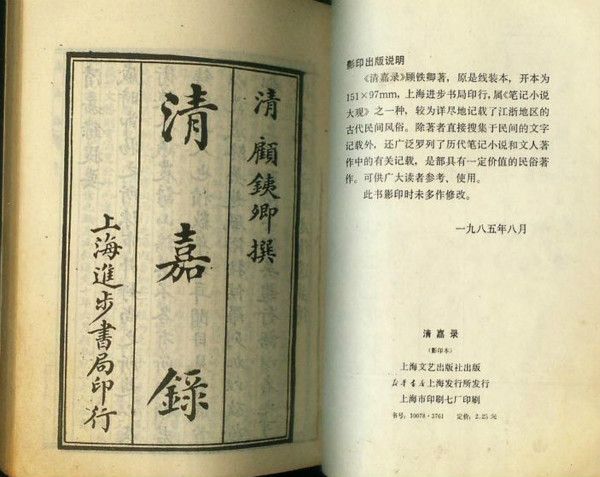 清 顧鉄卿撰
清嘉録
上海進步書局印行
影印出版说明
《清嘉录》顾铁卿著，原是线装本，开本为
151×97mm，上海进步书局印行，属《笔记小说
大观》之一种，较为详尽地记载了江浙地区的
古代民间风俗。除著者直接搜集于民间的文字
记载外，还广泛罗列了历代笔记小说和文人著
作中的有关记载，是部具有一定价值的民俗著
作。可供广大读者参考、使用。
此书影印时未多作修改。
一九八五年八月
清嘉录
（影印本）
上海文艺出版社出版
新华书店上海发行所发行
上海市印刷七厂印刷
书号：10078·3761 定价：2.25元